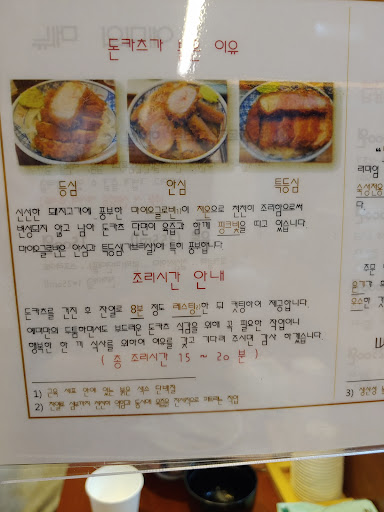 돈카츠가 붉은 이유
등심 안심 특등심
신선한 돼지고기에 풍부한 마이오글로빈1)이 저온으로 천천히 조리함으로써
변성되지 않고 남아 돈카츠 단면이 육즙과 함께 핑크빛을 띠고 있습니다
마이오글로빈은 안심과 특등심(가브리살)에 특히 풍부합니다
조리시간 안내
돈카츠를 건진 후 잔열로 8분 정도 레스팅2)한 뒤 컷팅하여 제공합니다.
에만의 도톰하면서도 부드러운 돈카츠 식감을 위해 꼭 필요한 작업이니
행복한 한 끼 식사를 위하여 여유를 갖고 기다려 주시면 감사 하겠습니다.
( 총 조리시간 15 ~ 20 분 )
1) 근육 세포 안에 있는 붉은 색소 단백질
2)
리마임
다.
주문
3)